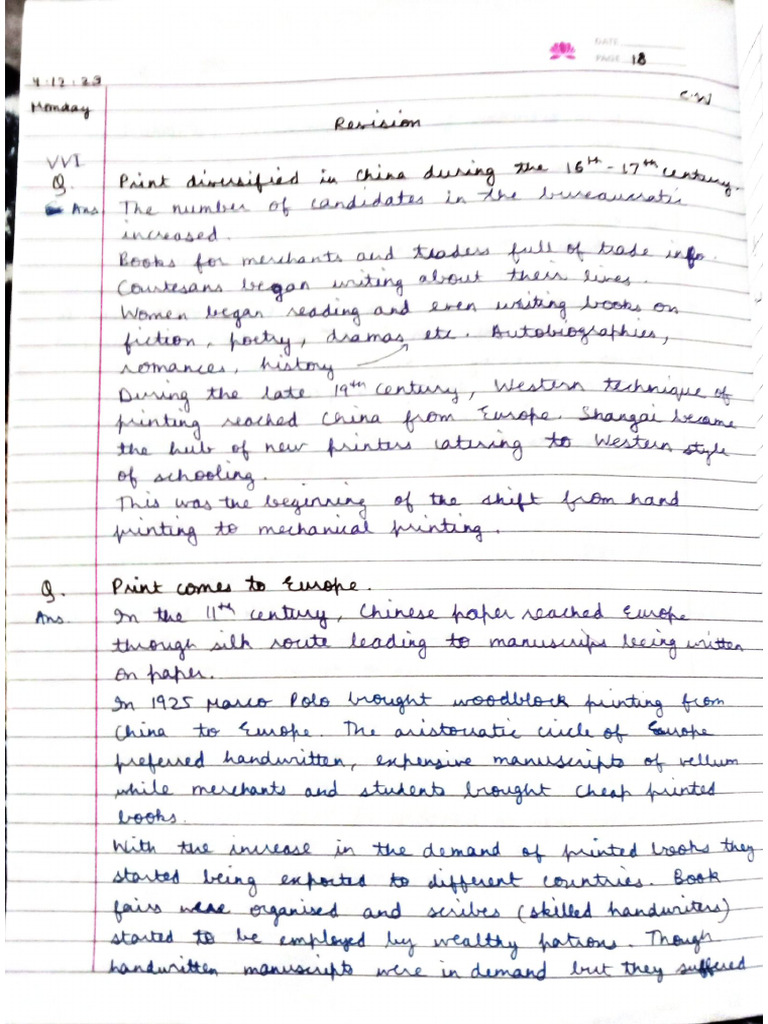 DATE
PAGE 18
4.12.23
Monday
C.W
Revision
VVI
Q. Print diversified in China during the 16th - 17th century.
Ans. The number of candidates in the bureaucratic
increased.
Books for merchants and traders full of trade info.
Courtesans began writing about their lives.
Women began reading and even writing books on
fiction, poetry, dramas, etc. Autobiographies,
romances, history
During the late 19th century, Western technique of
printing reached China from Europe. Shangai became
the hub of new printers catering to Western style
of schooling.
This was the beginning of the shift from hand
printing to mechanical printing.
Q. Print comes to Europe.
Ans. In the 11th century, Chinese paper reached Europe
through silk route leading to manuscrips being written
on paper.
In 1925 Marco Polo brought woodblock printing from
China to Europe. The aristocratic circle of Europe
preferred handwritten, expensive manuscripts of vellum
while merchants and students brought cheap printed
books.
With the increase in the demand of printed books they
started being exported to different countries. Book
fairs were organised and scribes (skilled handwriters)
started to be employed by wealthy patrons. Though
handwritten manuscripts were in demand but they suffered